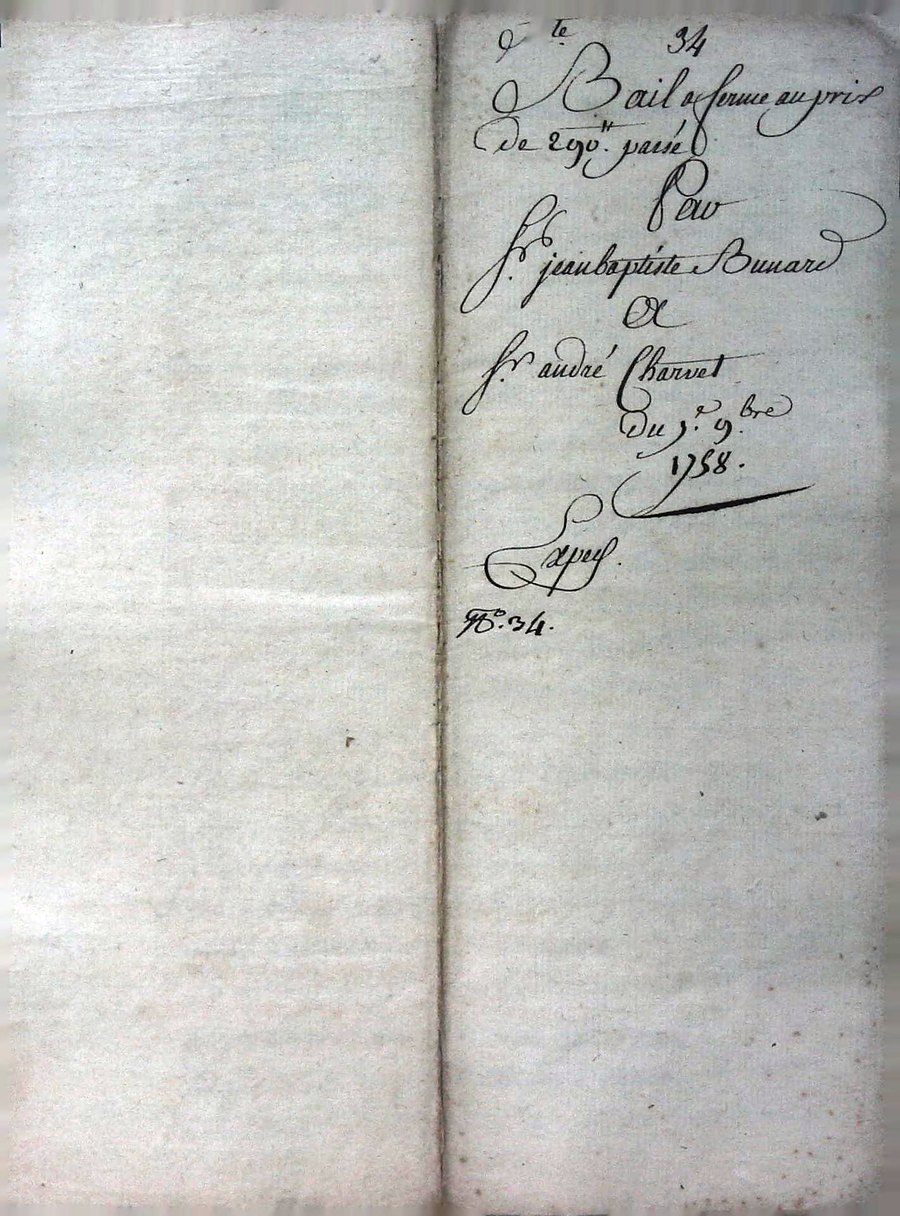 34
Bail a ferme au prix
de 290.ᴴ passé
Par
Sr. jean baptiste Bunard
A
Sr. andré Charvet
Du 9bre
1758.
Exped.
No. 34.